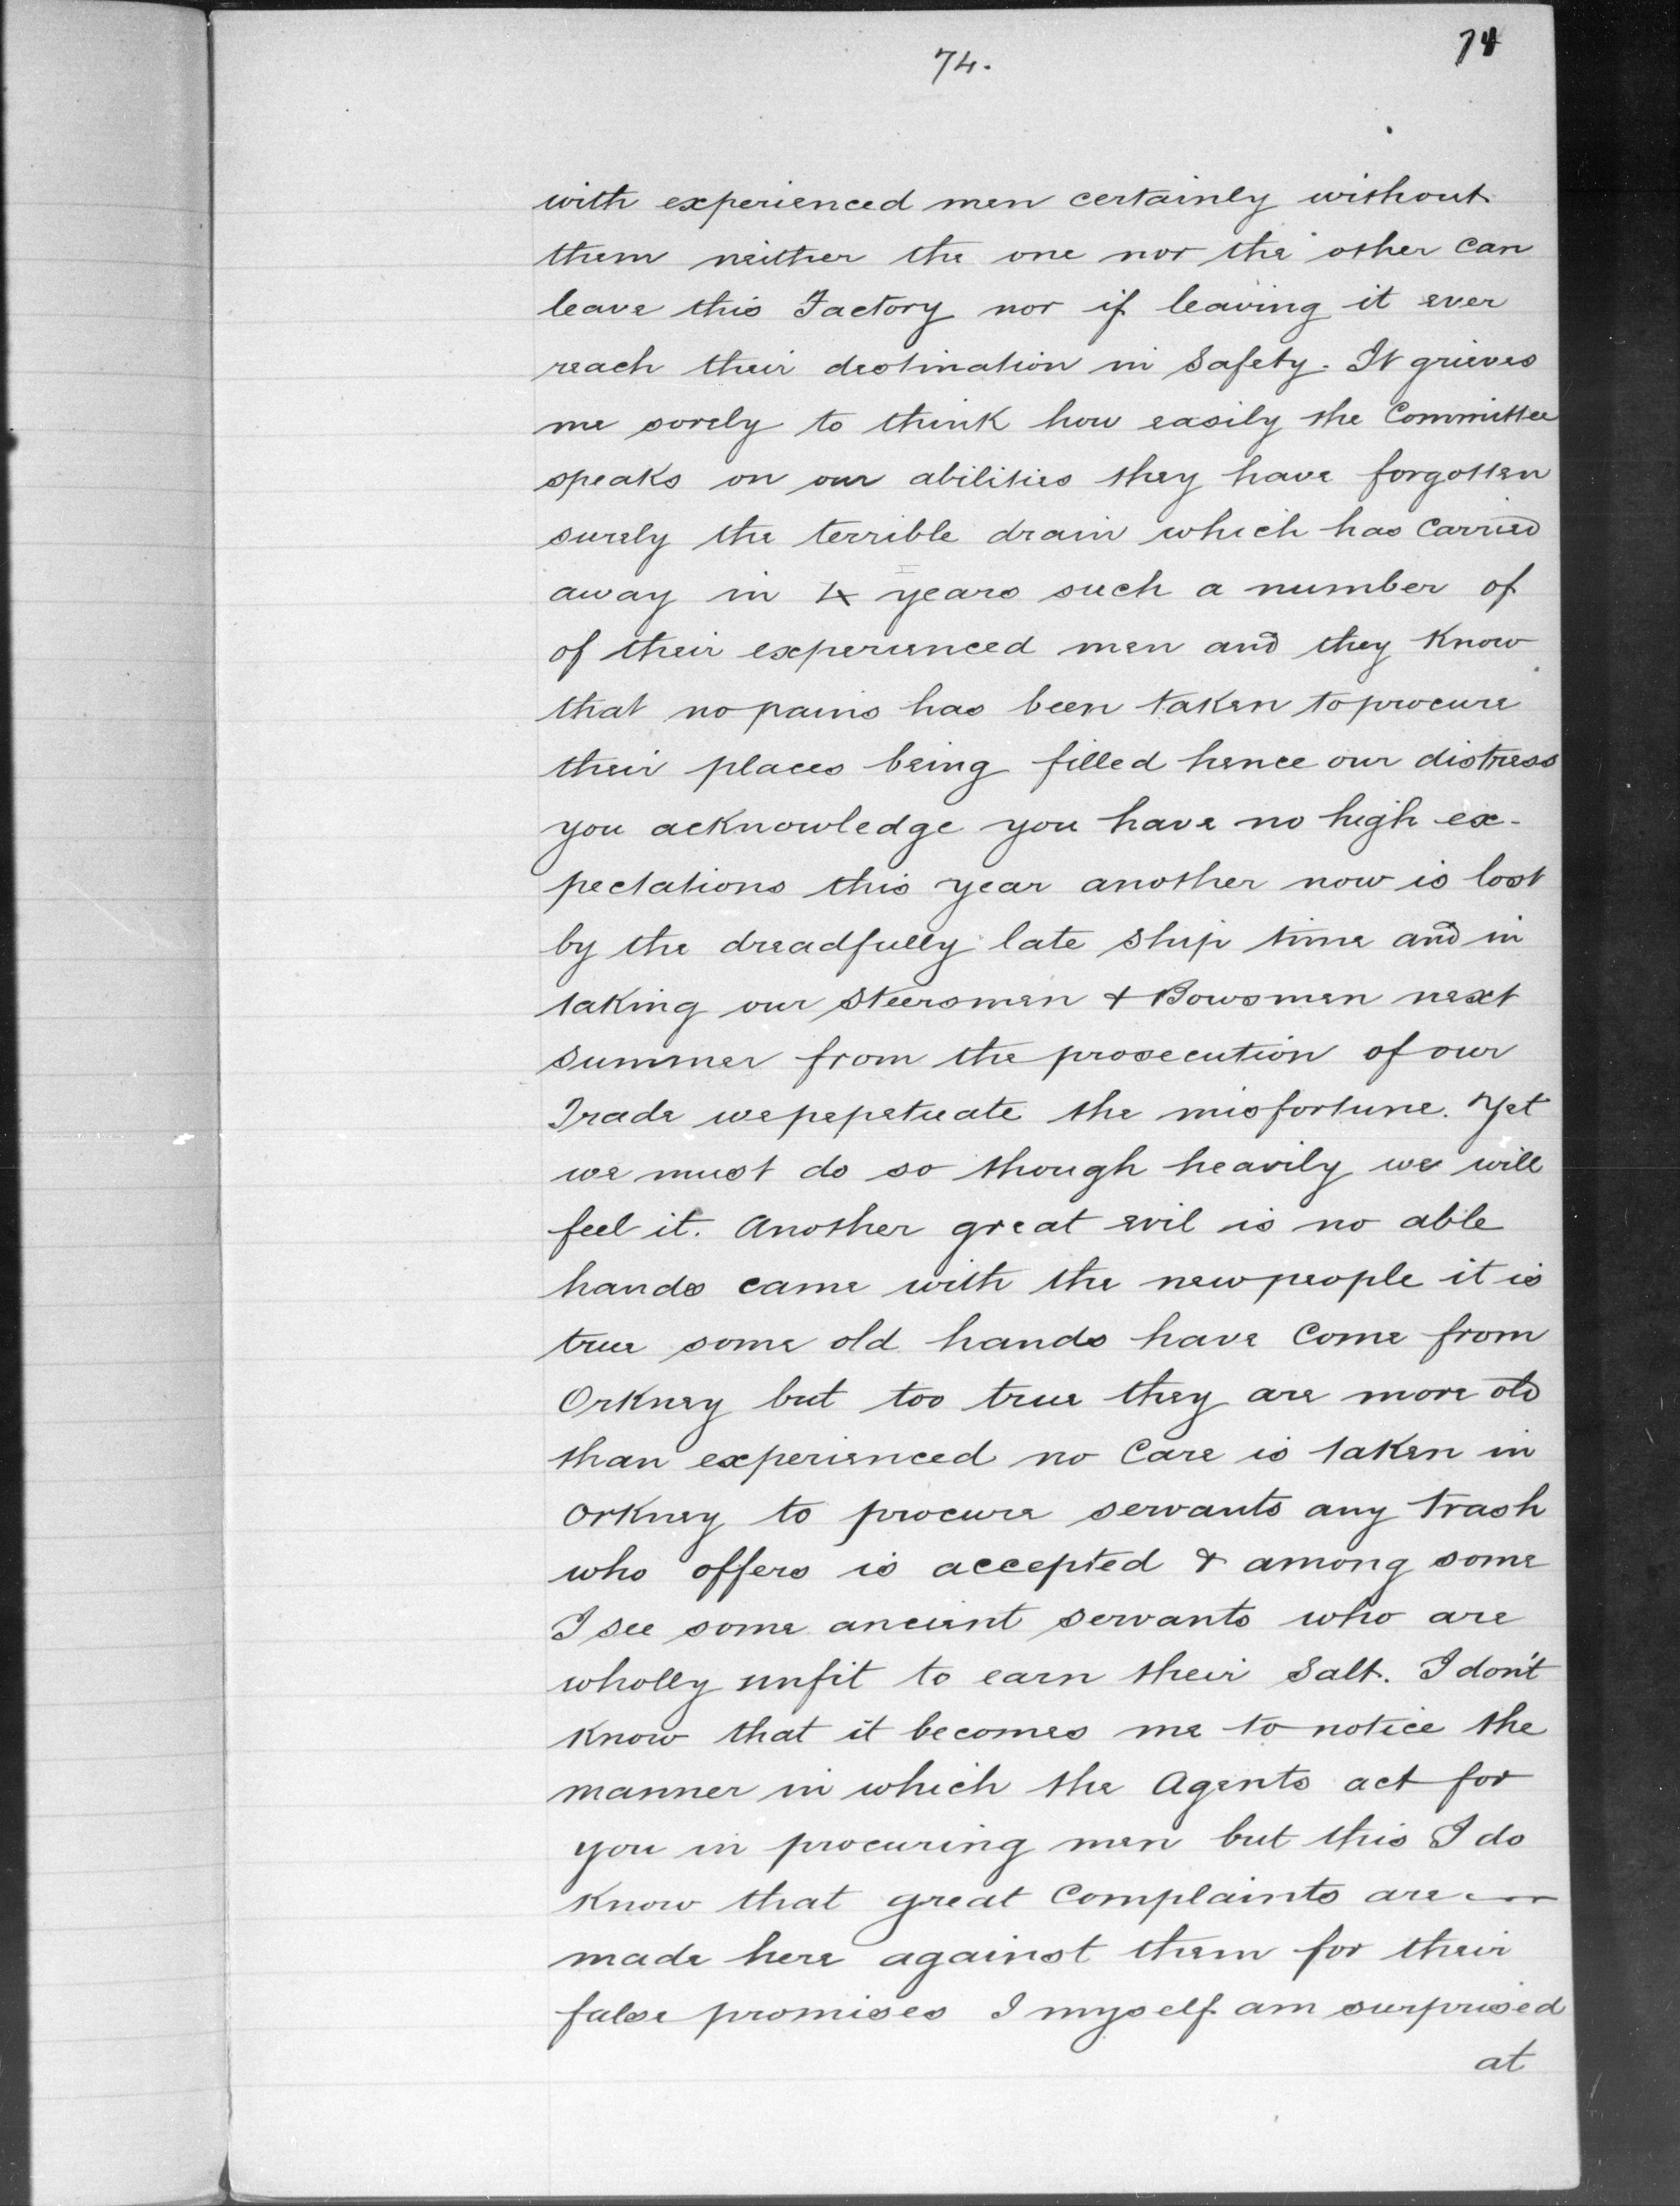 74.
74
with experienced men certainly without
them neither the one nor the other can
leave this Factory nor if leaving it ever
reach their destination in Safety. It grieves
me sorely to think how easily the Committee
speaks on our abilities they have forgotten
surely the terrible drain which has carried
away in 4 years such a number of
of their experienced men and they know
that no pains has been taken to procure
their places being filled hence our distress
you acknowledge you have no high ex-
pectations this year another now is lost
by the dreadfully late Ship time and in
taking our Steersmen & Bowsmen next
Summer from the prosecution of our
Trade we pepetuate the misfortune. Yet
we must do so though heavily we will
feel it. Another great evil is no able
hands came with the new people it is
true some old hands have Come from
Orkney but too true they are more old
than experienced no Care is taken in
Orkney to procure servants any trash
who offers is accepted & among some
I see some ancient servants who are
wholly unfit to earn their Salt. I don't
know that it becomes me to notice the
manner in which the Agents act for
you in procuring men but this I do
know that great Complaints are
made here against them for their
false promises I myself am surprised
at